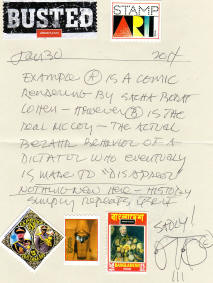 BUSTED
STAMP
ART
Jan 30 2014
EXAMPLE A IS A COMIC
RENDERING BY SACHA BARAT
COHEN - HOWEVER B IS THE
REAL McCOY - THE ACTUAL
BIZARRE BEHAVIOR OF A
DICTATOR WHO EVENTUALLY
IS MADE TO "DISAPPEAR"
NOTHING NEW HERE - HISTORY
SIMPLY REPEATS ITSELF
SADLY!
বাংলাদেশ
BANGLADESH